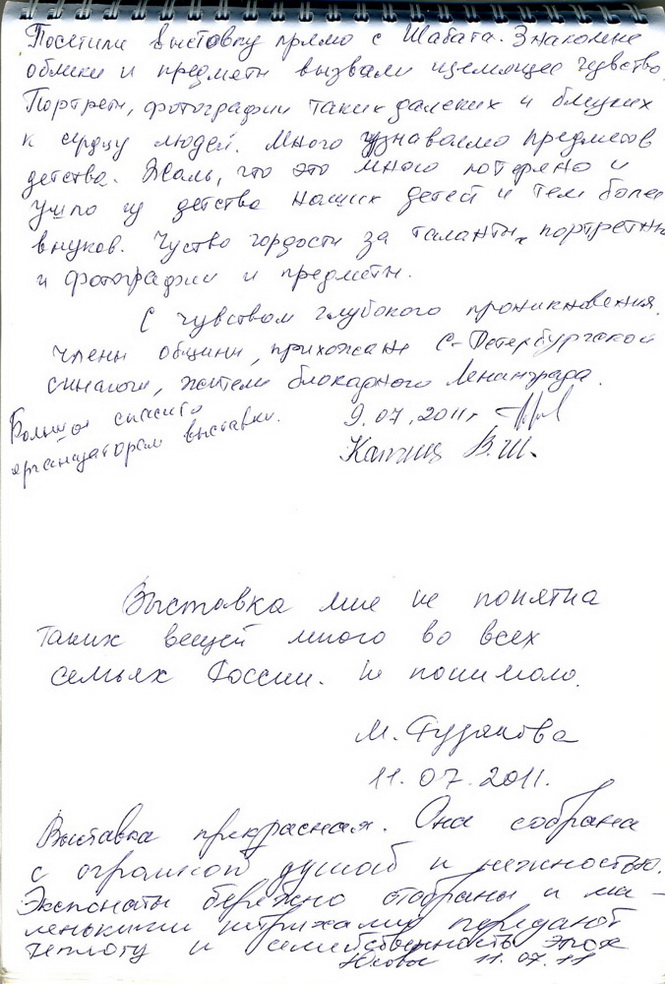 Посетили выставку прямо с Шабата. Знакомые
облики и предметы вызвали щемящее чувство.
Портреты, фотографии таких далеких и близких
к сердцу людей. Много узнаваемо предметов
детства. Жаль, что это много потеряно и
ушло из детства наших детей и тем более
внуков. Чуство гордости за таланты, портреты
и фотографии и предметы.
С чувством глубокого проникновения.
Члены общины, прихожане С-Петербургской
синагоги, жители блокадного Ленинграда.
Большое спасибо
организаторам выставки.
9.07.2011г
В.Ш.
Выставка мне не понятна
таких вещей много во всех
семьях России. Не понимаю.
М.
11.07.2011.
Выставка прекрасная. Она собрана
с огромной душой и нежностью.
Экспонаты бережно отобраны и ма-
ленькими штрихами передают
теплоту и семейственность эпох
11.07.11